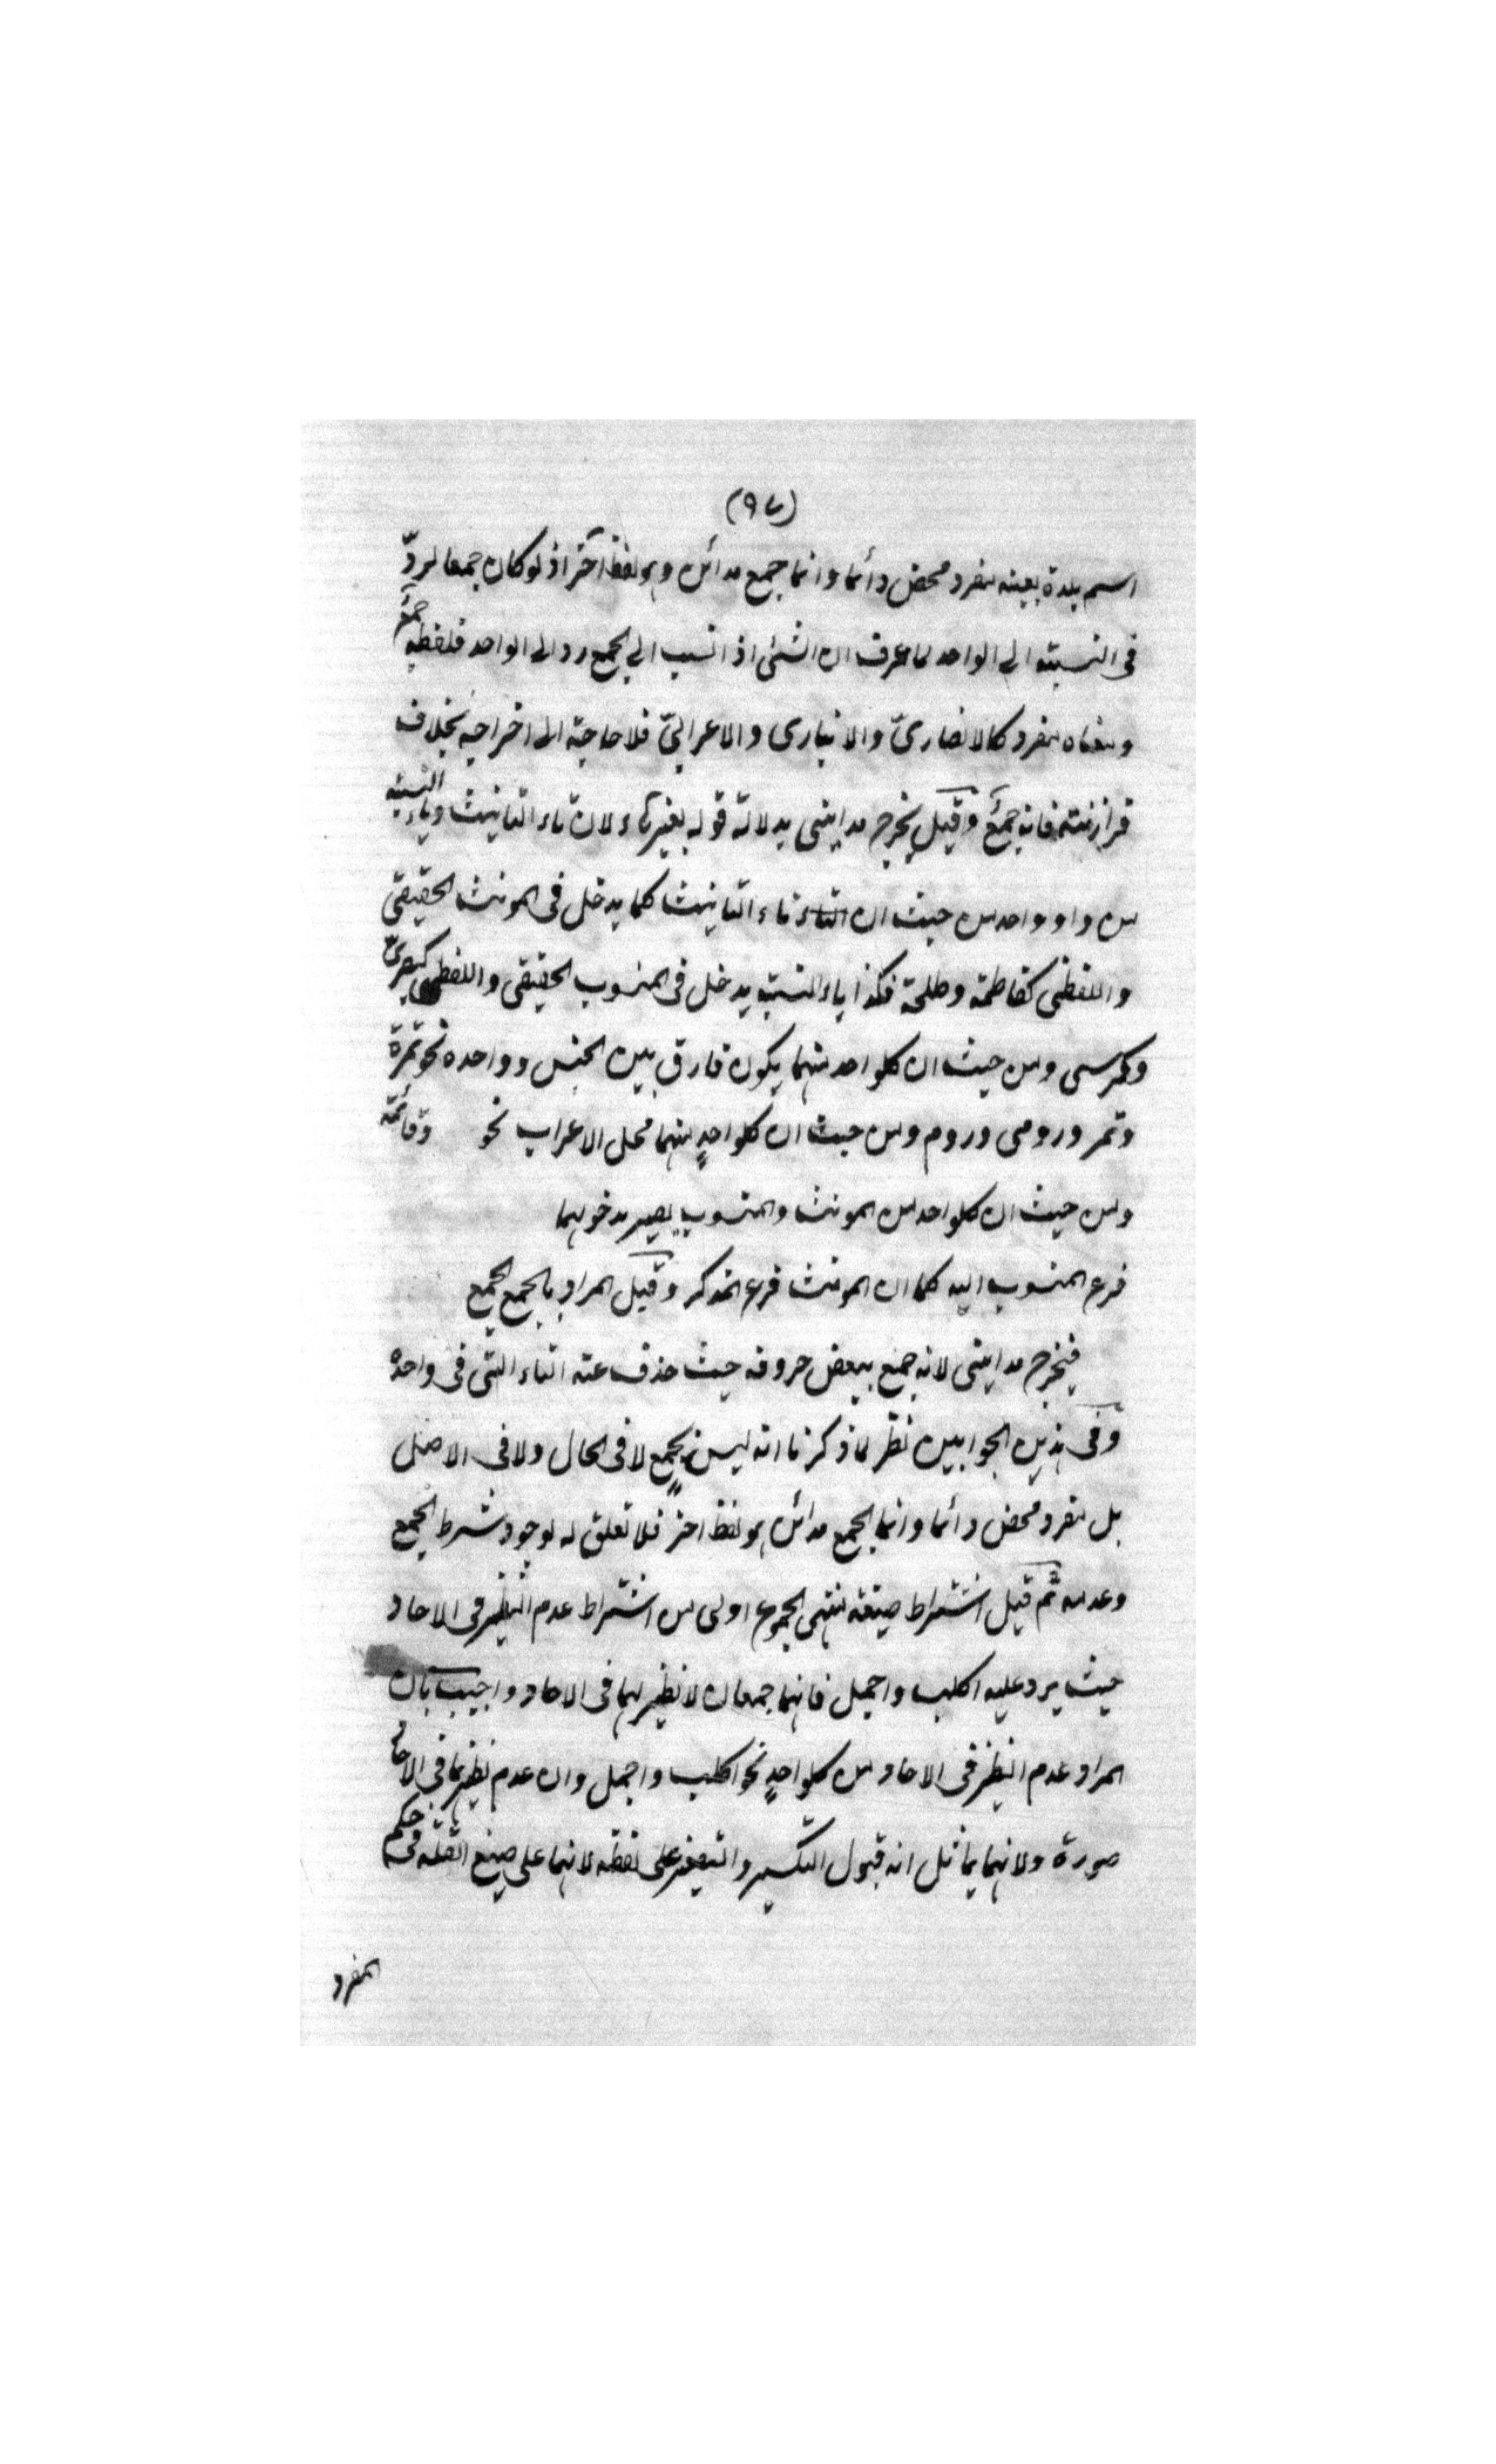 (٩٧)
اسم بلدة بعينه مفرد محض دائما وانما جمع مدائن وهو لفظ آخر اذ لو كان جمعا لردّ
فى النسبته الى الواحد لما عرف ان الشئ اذ انسب الى الجمع رد الى الواحد فلفظه جمع
ومعناه مفرد كالانصارىّ والانبارى والاعرابىّ فلا حاجته الى اخراجه بخلاف
فرازنته فانه جمعٌ وقيل يخرج مداينى بدلالته قوله بغير تاء لان تاء التانيث وياء النسبته
من واو واحد من حيث ان التاء تاء التانيث كما يدخل فى المونث الحقيقى
واللفظى كفاطمة وطلحة فكذا ياء النسبته يدخل فى المنسوب الحقيقى واللفظى كبصرىّ
وكرسى ومن حيث ان كلواحد منهما يكون فارق بين الجنس وواحده نحو تمرة
وتمر ورومى وروم ومن حيث ان كلواحدٍ منهما محل الاعراب نحو وقائمة
ومن حيث ان كلواحد من المونث والمنسوب يصير مدخولهما
فرع المنسوب اليه كما ان المونث فرع المذكر وقيل المراد بالجمع الجمع
فيخرج مداينى لانه جمع ببعض حروفه حيث حذف عنه التاء التى فى واحده
وفى هذين الجوابين نظر لما ذكرنا انه ليس بجمعٍ لا فى الحال ولا فى الاصل
بل مفرد محض دائما وانما الجمع مدائن هو لفظ اخر فلا تعلق له لوجود شرط الجمع
وعدمه ثم قيل اشتراط صيغة منتهى الجموع اولى من اشتراط عدم النظير فى الاحاد
حيث يرد عليه اكلب واجمل فانهما جمعان لا نظير لهما فى الاحاد واجيب بان
المراد عدم النظير فى الاحاد من كلواحدٍ نحو اكلب واجمل وان عدم نظيرهما فى الاحاد
صورة ولانهما يماثل انه قبول التكسير والتصغير على لفظه لانهما على صيغ القلّه فى حكم
المفرد